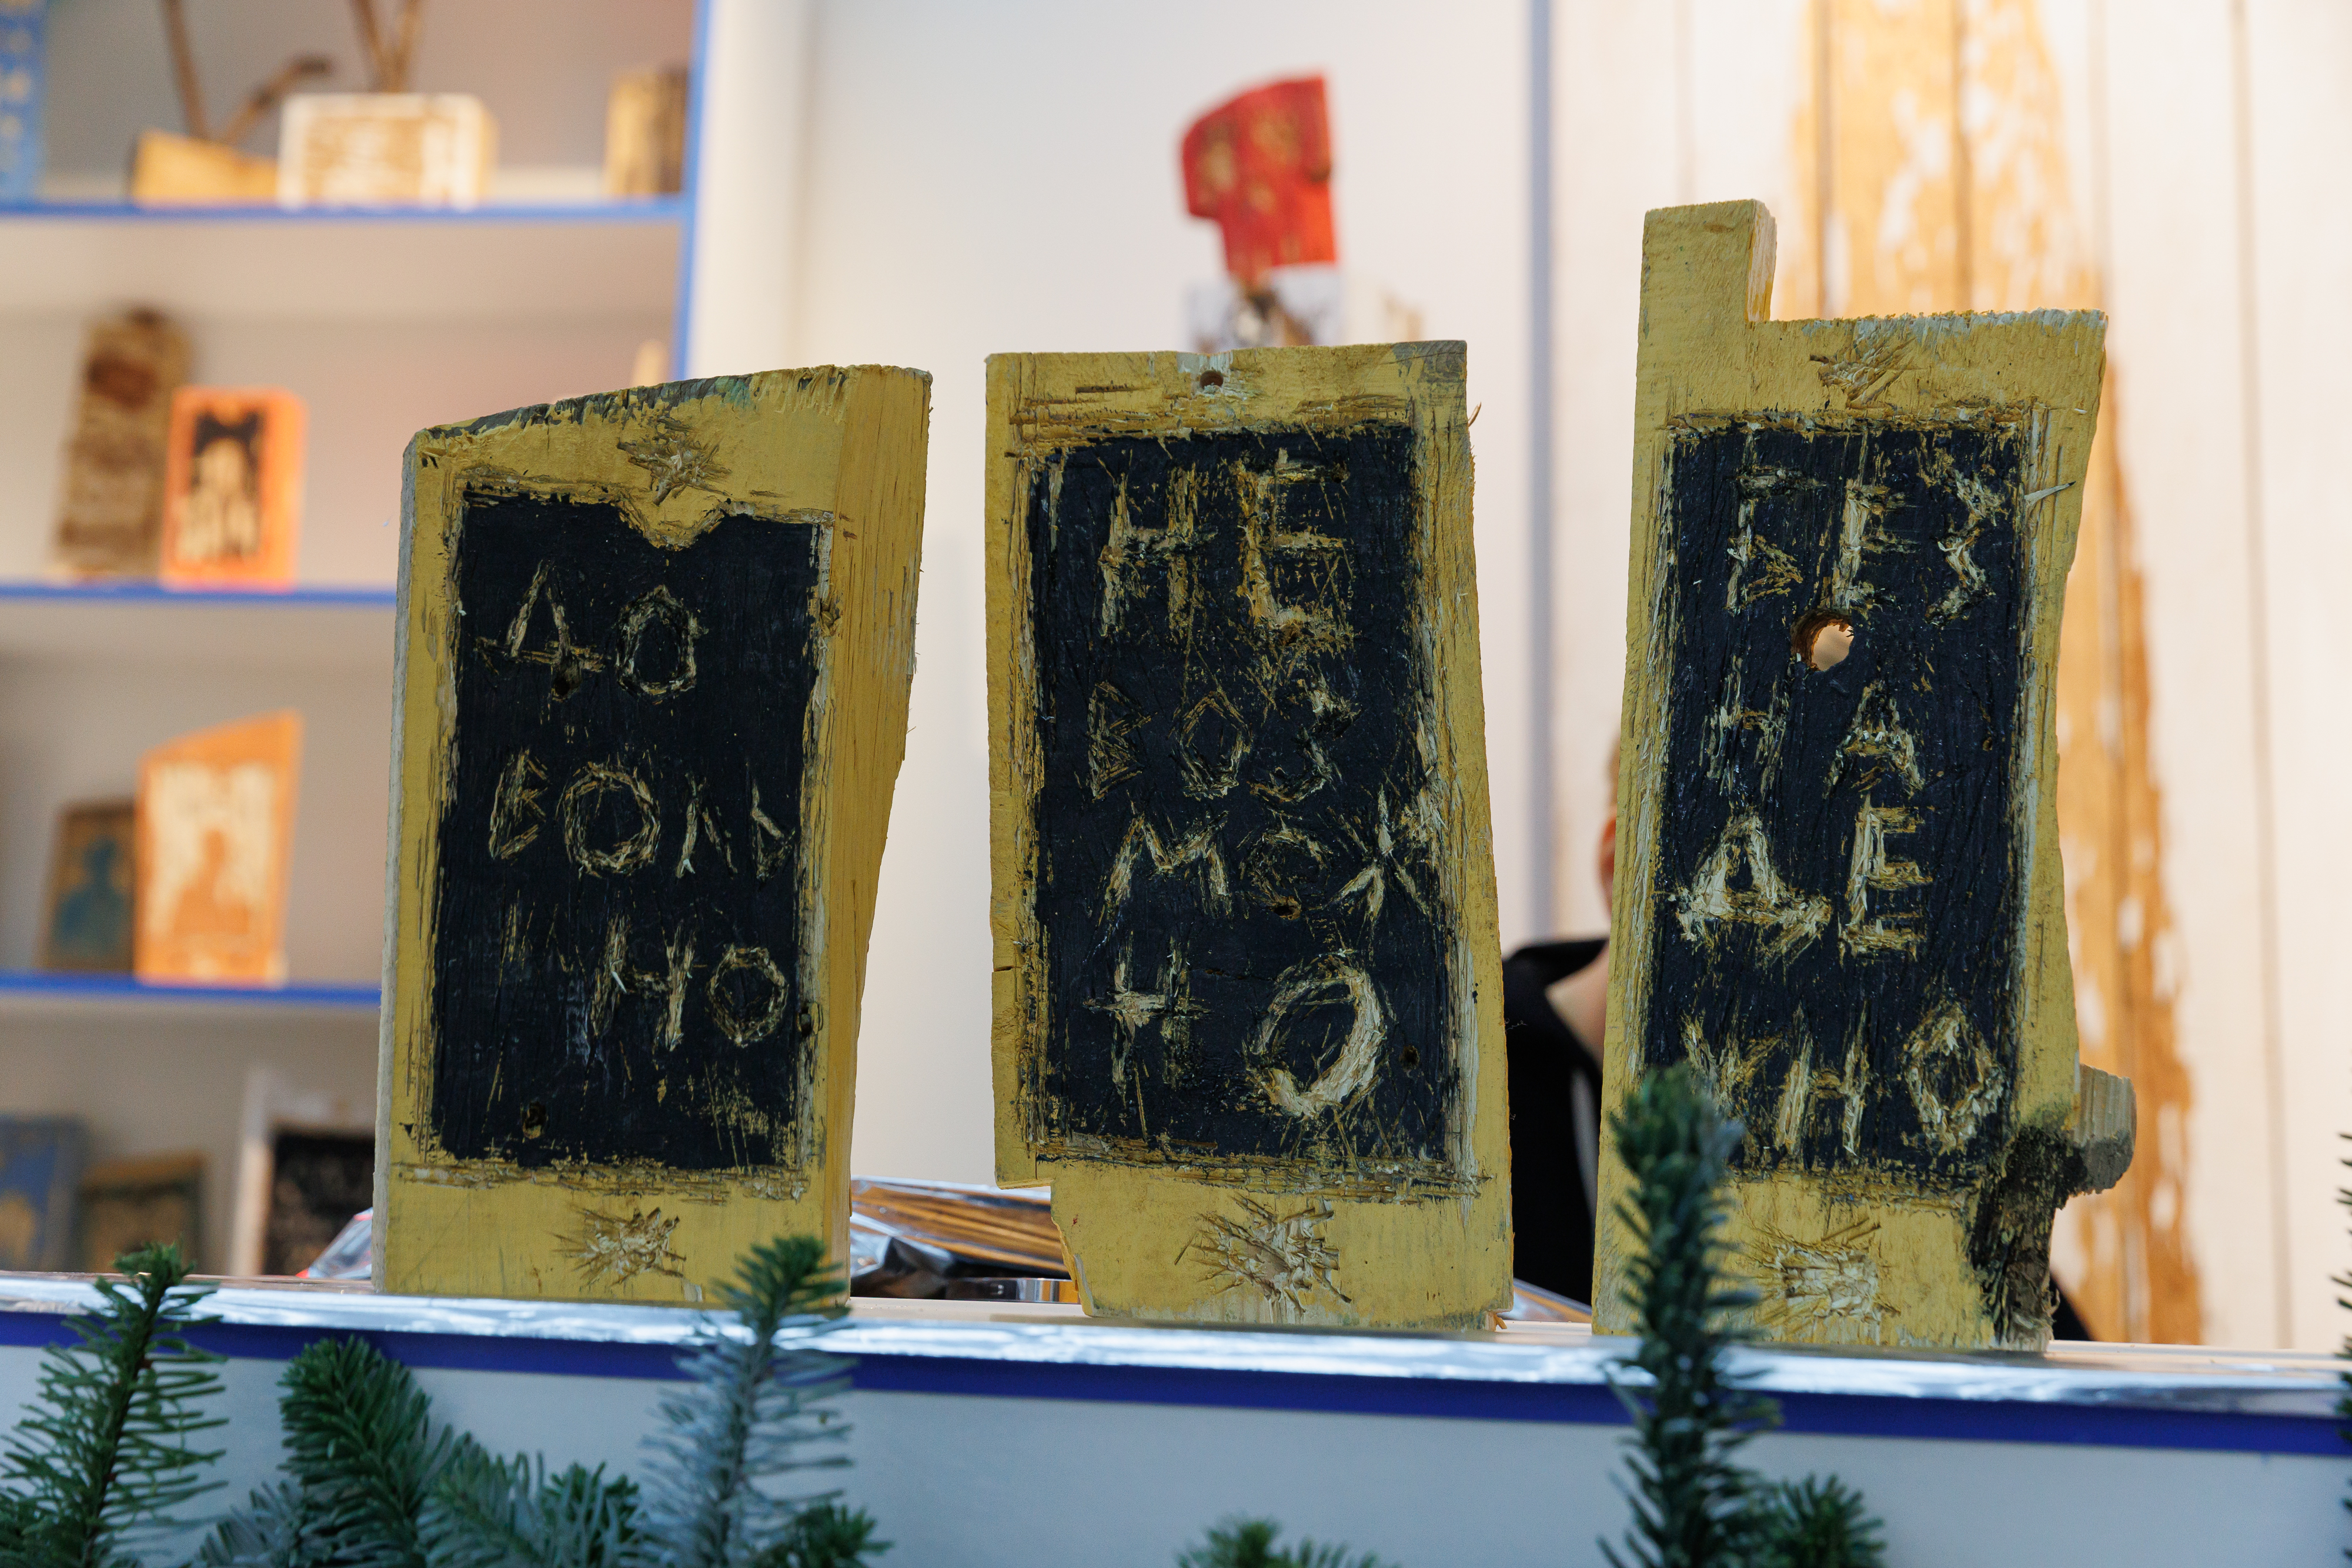 ДО
ВОЛЬ
НО
НЕ
ВОЗ
МОЖ
НО
БЕЗ
НА
ДЕ
ЖНО